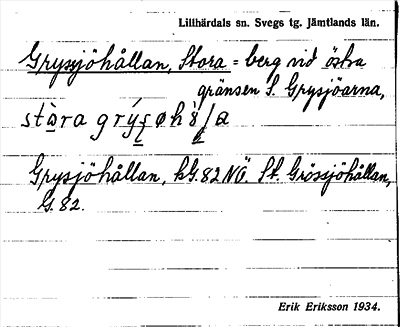 Lillhärdals sn. Svegs tg. Jämtlands län.
Grysjöhållan, Stora = berg vid östra
gränsen S. Grysjöarna,
Grysjöhållan, kG. 82 NÖ. St. Grössjöhållan,
G. 82.
Erik Eriksson 1934.